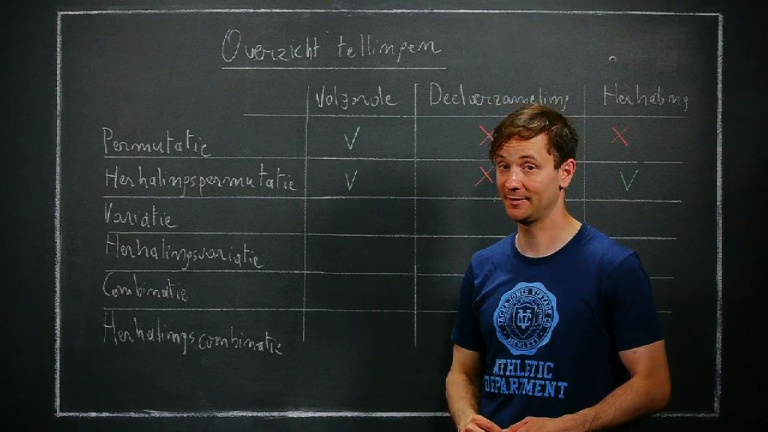 Overzicht tellingen
Volgorde Deelverzameling Herhaling
Permutatie ✓ ✗ ✗
Herhalingspermutatie ✓ ✗ ✓
Variatie
Herhalingsvariatie
Combinatie
Herhalingscombinatie
JACK & JONES VINTAGE CO
ATHLETIC
DEPARTMENT